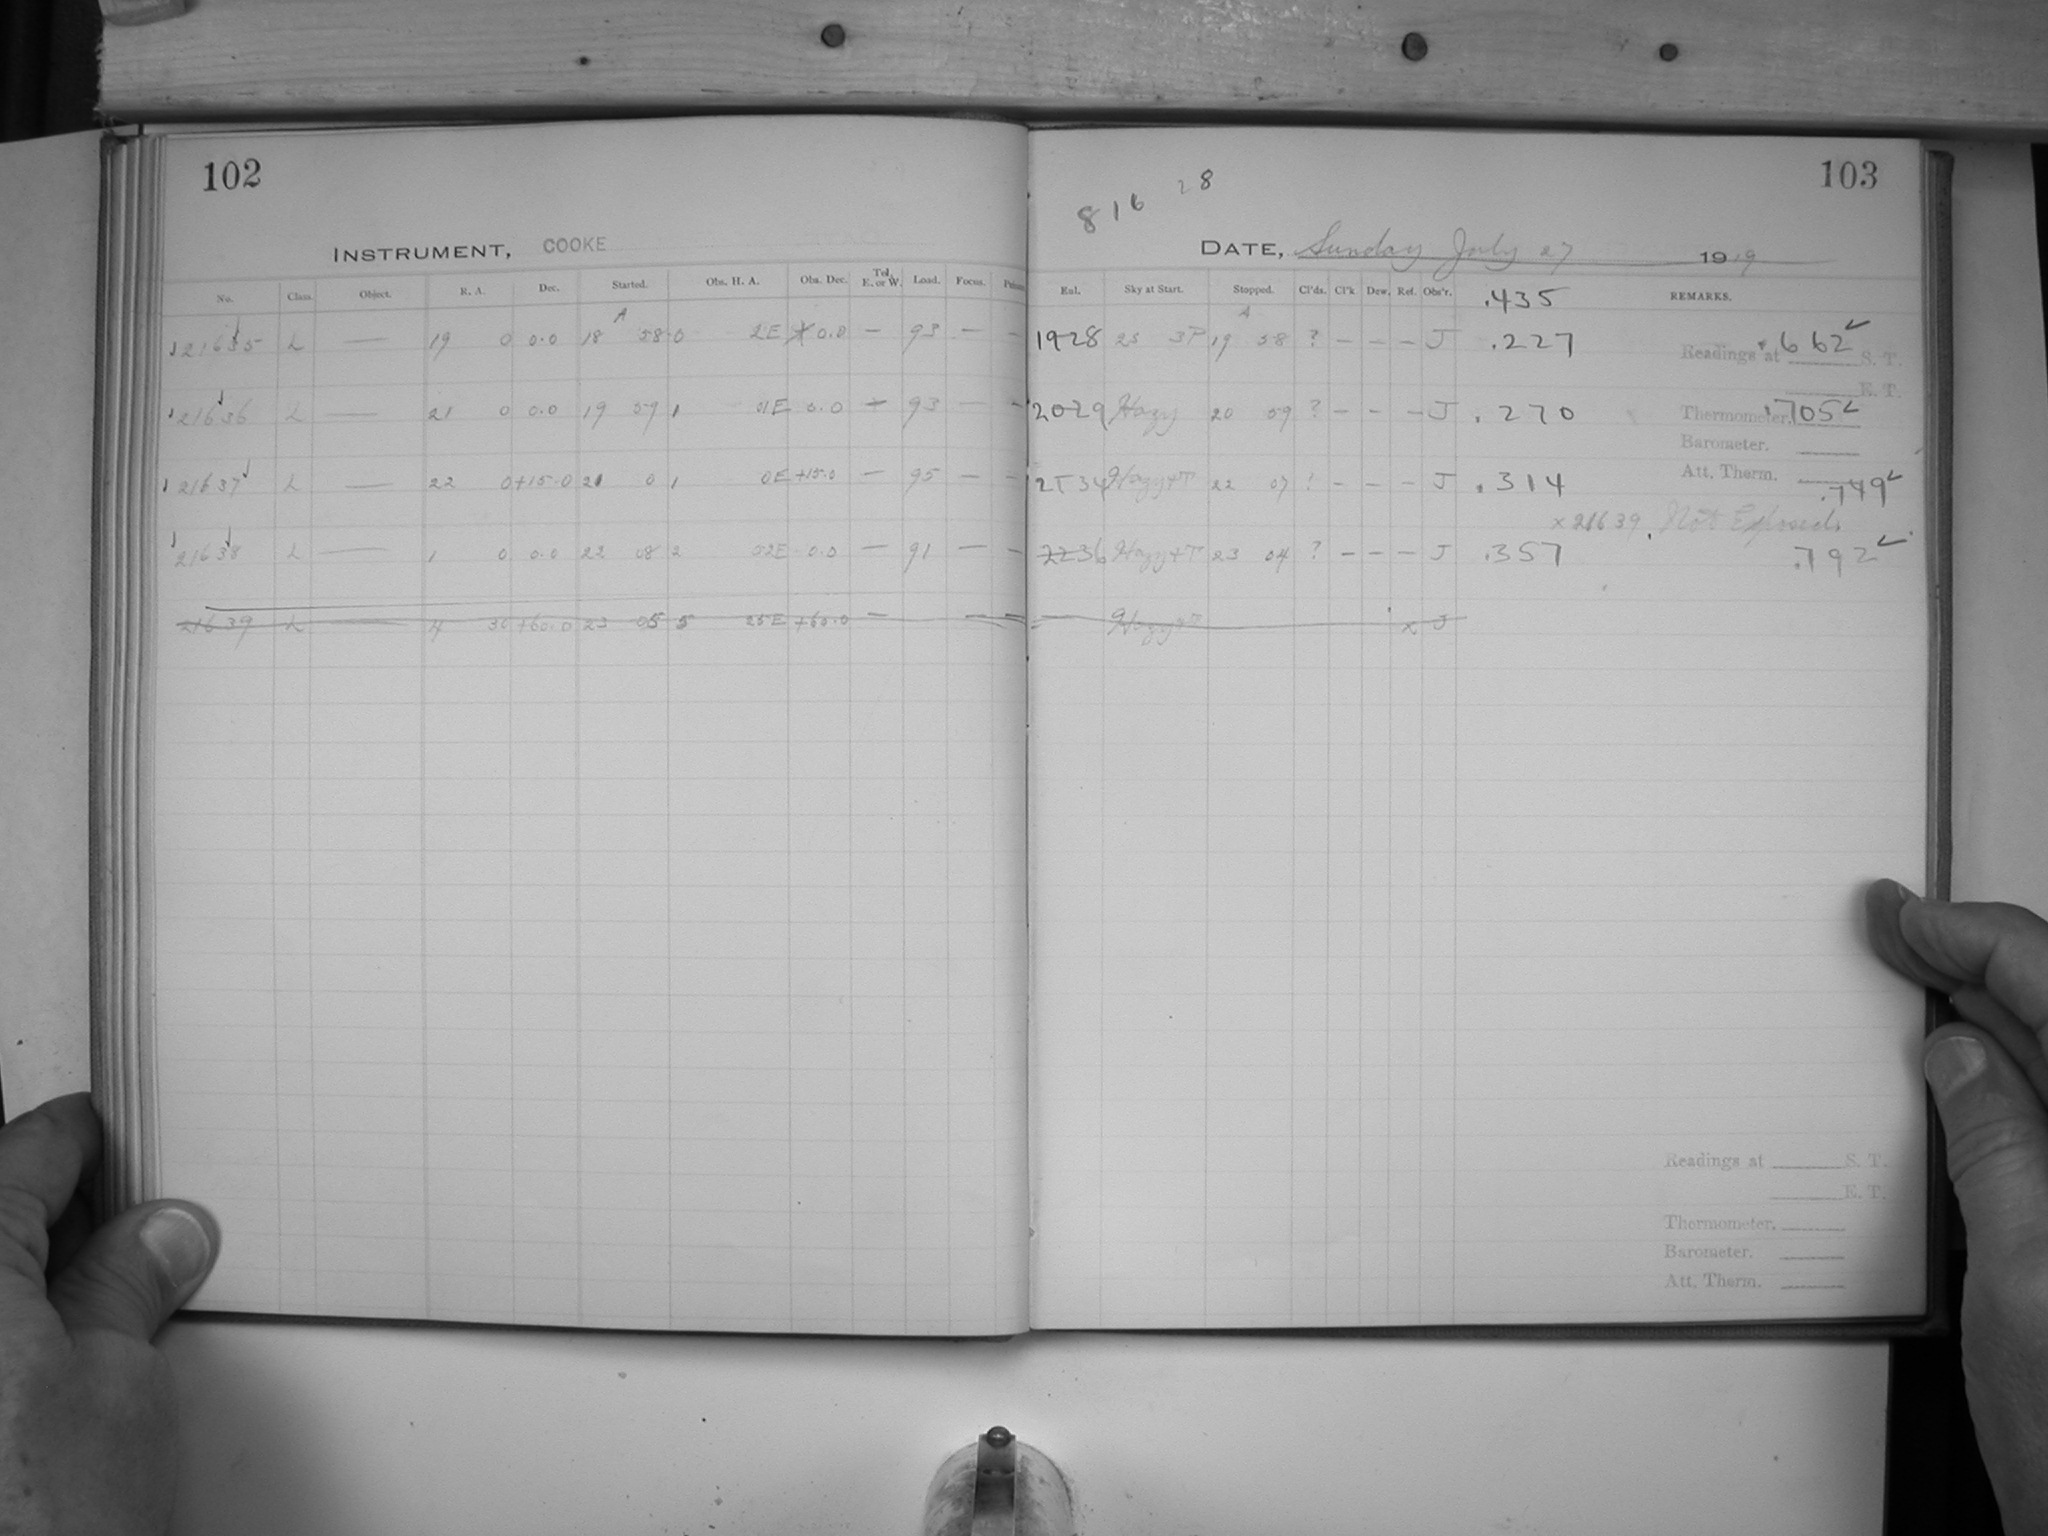 102
INSTRUMENT, COOKE
No. Class. Object. R. A. Dec. Started. Obs. H. A. Obs. Dec. Tel. E. or W. Load. Focus.
21635 L — 19 0 0.0 18 A 58 0 2E 0.0 — 93 — —
21636 L — 21 0 0.0 19 59 1 01E 0.0 — 93 — —
21637 L — 22 0 +15.0 21 0 1 0E +15.0 — 95 — —
21638 L — 1 0 0.0 22 08 2 52E 0.0 — 91 — —
21639 L — 4 30 +60.0 23 05 5 25E +60.0 —
103
816 28
DATE, Sunday July 27 1919
Sky at Start. Stopped. Cl'ds. Cl'k Dew. Ref. Obs'r. .435 REMARKS.
1928 25 3P 19 A 58 ? — — — J .227 .662 ✓
Readings at S. T.
E. T.
2029 Hazy 20 59 ? — — — J .270 .705 ✓
Thermometer.
Barometer.
Att. Therm.
2134 Hazy+T 22 07 ? — — — J .314 .749 ✓
× 21639. Not Exposed.
2236 Hazy+T 23 04 ? — — — J .357 .792 ✓
Hazy+T × J
Readings at S. T.
E. T.
Thermometer.
Barometer.
Att. Therm.